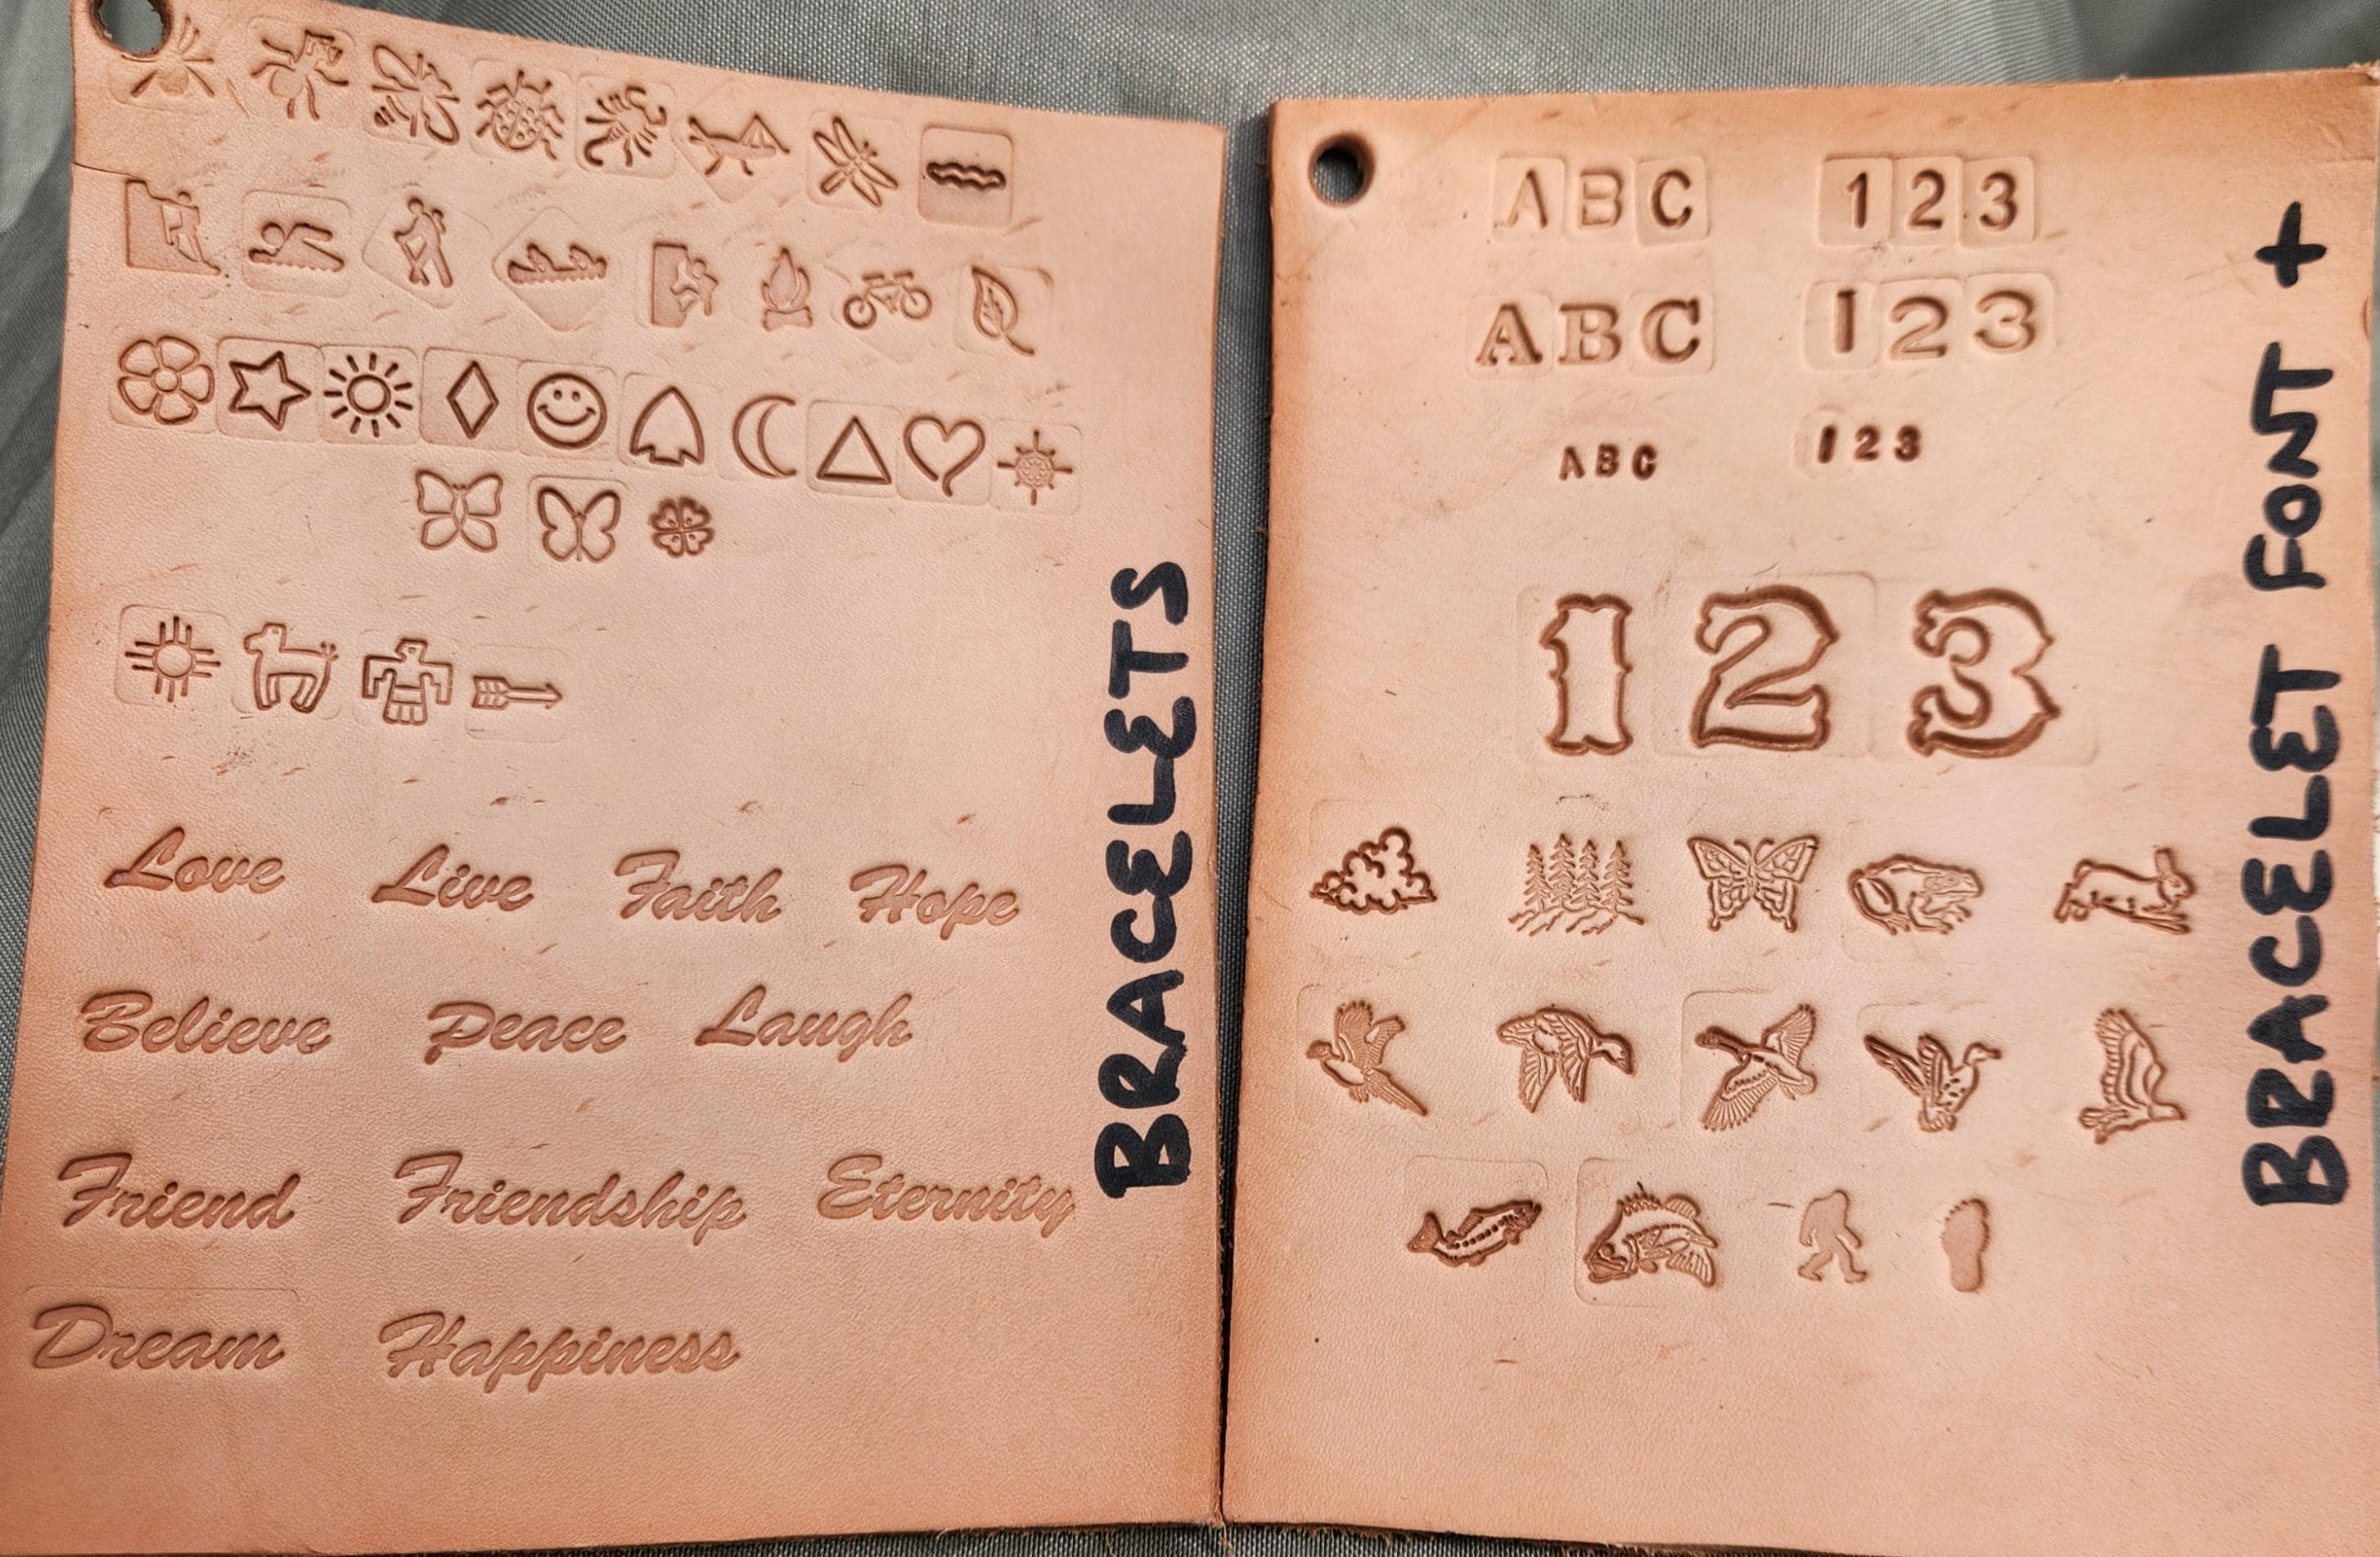 Love Live Faith Hope
Believe Peace Laugh
Friend Friendship Eternity
Dream Happiness
BRACELETS
ABC 123
ABC 123
ABC 123
123
BRACELET FONT +